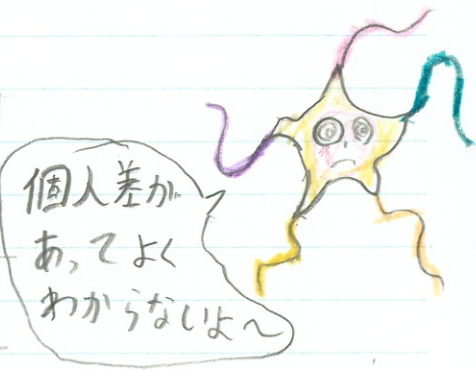 個人差が
あってよく
わからないよ～